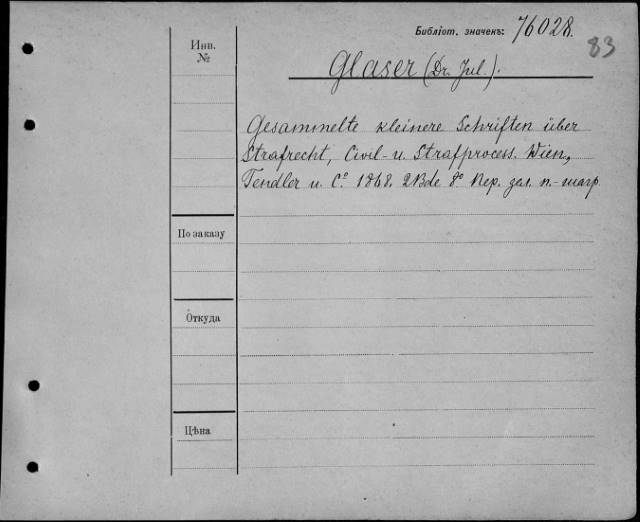 Библіот. значекъ: 76028.
83
Инв.
№
Glaser (Dr. Jul.).
Gesammelte kleinere Schriften über
Strafrecht, Civil- u. Strafprocess. Wien,
Tendler u. Cº 1868. 2 Bde 8º Пер. зел. п.-шагр.
По заказу
Откуда
Цѣна